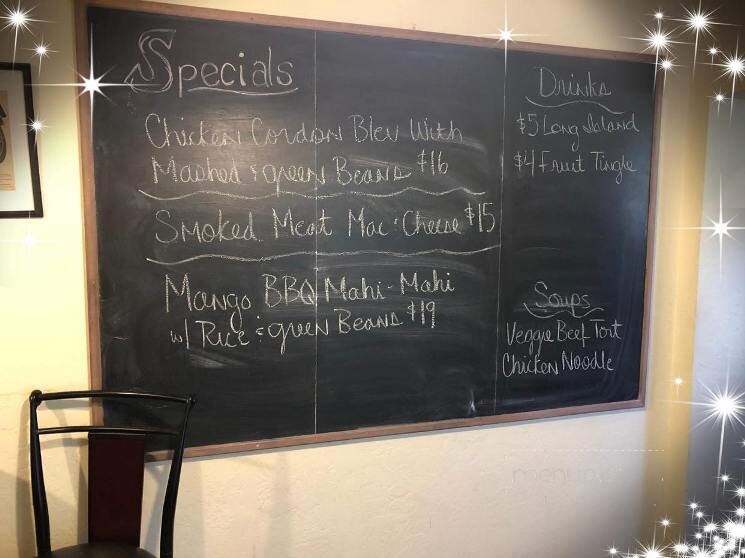 Specials
Chicken Cordon Bleu With
Mashed & green Beans $16
Smoked Meat Mac & Cheese $15
Mango BBQ Mahi-Mahi
w/ Rice & green Beans $19
Drinks
$5 Long Island
$4 Fruit Tingle
Soups
Veggie Beef Tort
Chicken Noodle